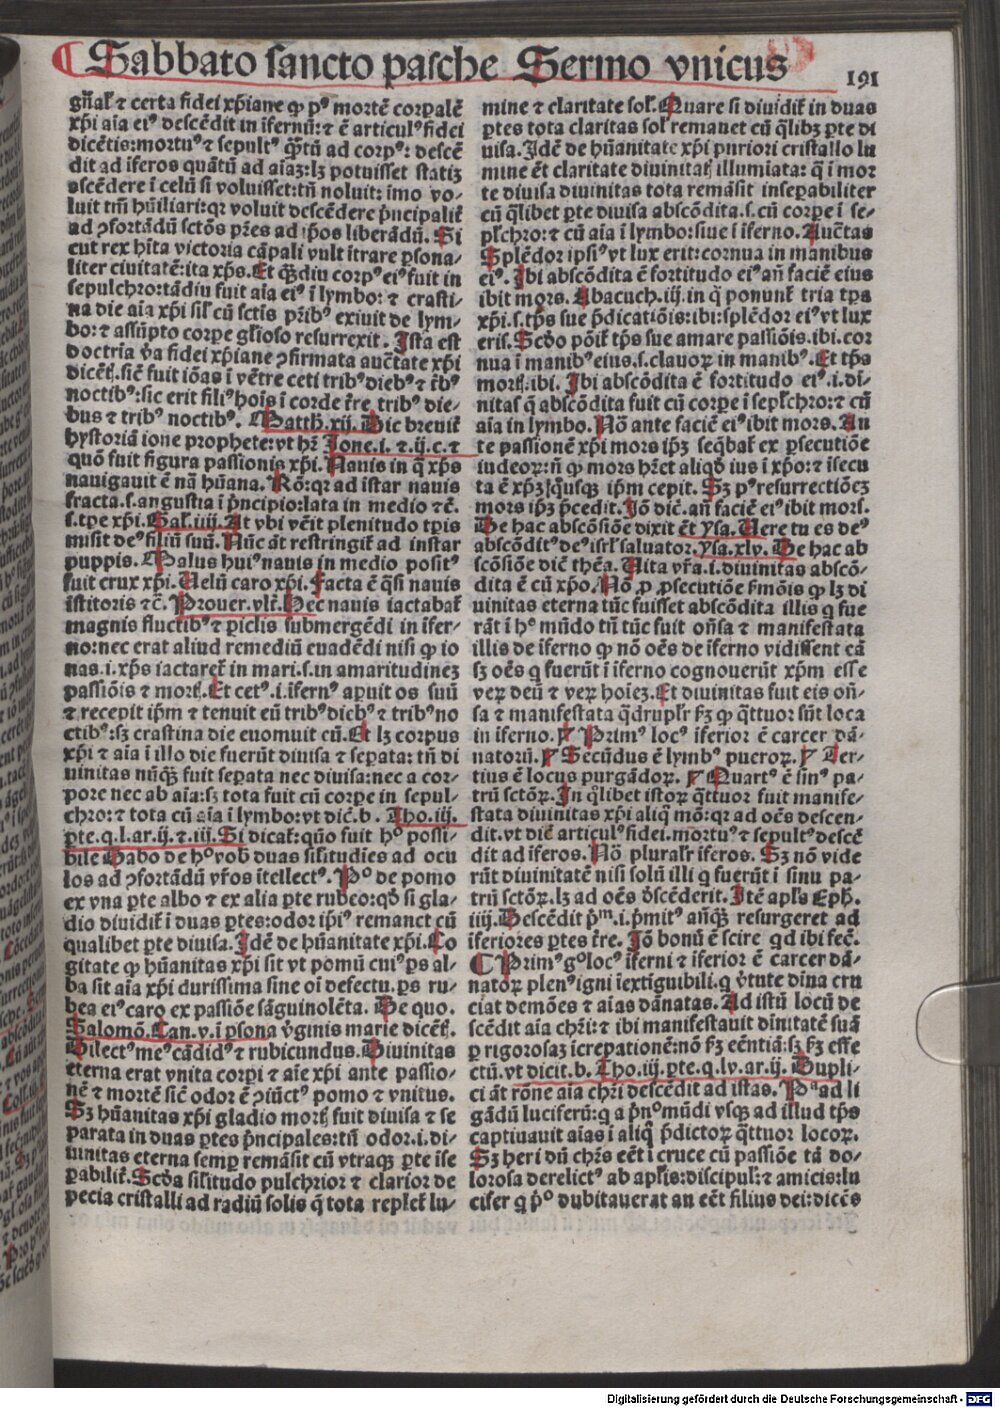 ¶ Sabbato sancto pasche Sermo vnicus
191
gñaľ ⁊ certa fidei xp̄iane ꝙ pꝰ mortē corpalē
xp̄i aīa eiꝰ descēdit in īfernū: ⁊ ē articulꝰ fidei
dicētis: mortuꝰ ⁊ sepultꝰ q̄tū ad corpꝰ: descē
dit ad īferos quātū ad aīaz: lꝫ potuisset statiꝫ
ascēdere ī celū si voluisset: tn̄ noluit: imo vo-
luit tm̄ hūiliari: qꝛ voluit descēdere p̄ncipaliť
ad ꝯfortādū sctōs pr̄es ad ip̄os liberādū. Si
cut rex hīta victoria cāpali vult ītrare ꝑsona-
liter ciuitatē: ita xp̄s. Et qꝫdiu corpꝰ eiꝰ fuit in
sepulchro: tādiu fuit aīa eiꝰ ī lymbo: ⁊ crasti-
na die aīa xp̄i siľ cū sctīs pr̄ibꝰ exiuit de lym-
bo: ⁊ assūpto corpe gľioso resurrexit. Ista est
doctrīa v̄a fidei xp̄iane ꝯfirmata auctāte xp̄i
dicētꝭ. sic̄ fuit iōas ī vētre ceti tribꝰ diebꝰ ⁊ tͥbꝰ
noctibꝰ: sic erit filiꝰ hoīs ī corde tr̄e tribꝰ die-
bus ⁊ tribꝰ noctibꝰ. Matth. xij. Hic breuiť
hystoriā ione prophete: vt hr̄ Jone. i. ⁊. ij. c. ⁊
quō fuit figura passionis xp̄i. Nauis in q̄ xp̄s
nauigauit ē nā hūana. Rō: qꝛ ad istar nauis
fracta. s. angustia ī p̄ncipio: lata in medio ⁊c̄.
s. tp̄e xp̄i. Gaľ. iiij. At vbi vēit plenitudo tp̄is
misit deꝰ filiū suū. Nūc āt restringiť ad instar
puppis. Malus huiꝰ nauis in medio positꝰ
fuit crux xp̄i. Uelū caro xp̄i. Facta ē q̄si nauis
īstitoris ⁊c̄. Prouer. vlť. Hec nauis iactabať
magnis fluctibꝰ ⁊ ꝑiclis submergēdi in īfer-
no: nec erat aliud remediū euadēdi nisi ꝙ io
nas. i. xp̄s iactareť in mari. s. in amaritudineꝫ
passiōis ⁊ mortꝭ. Et cetꝰ. i. īfernꝰ apuit os suū
⁊ recepit ip̄m ⁊ tenuit eū tribꝰ diebꝰ ⁊ tribꝰ no
ctibꝰ: sꝫ crastina die euomuit cū. Et lꝫ corpus
xp̄i ⁊ aīa ī illo die fuerūt diuisa ⁊ seꝑata: tn̄ di
uinitas nūqꝫ fuit seꝑata nec diuisa: nec a cor-
pore nec ab aīa: sꝫ tota fuit cū corpe in sepul-
chro: ⁊ tota cū aīa ī lymbo: vt dic̄. b. Tho. iij.
ꝑte. q. l. ar. ij. ⁊. iij. Si dicať: quō fuit hͦ possi-
bile Dabo de hͦ vob̄ duas siľitudies ad ocu
los ad ꝯfortādū vr̄os ītellectꝰ. Pͦ de pomo
ex vna ꝑte albo ⁊ ex alia ꝑte rubeo: qd̄ si gla-
dio diuidiť ī duas ꝑtes: odor ip̄iꝰ remanet cū
qualibet ꝑte diuisa. Idē de hūanitate xp̄i. Co
gitate ꝙ hūanitas xp̄i sit vt pomū cuiꝰ ꝑs al-
ba sit aīa xp̄i durissima sine oī defectu. ꝑs ru-
bea eiꝰ caro ex passiōe sāguinolēta. De quo.
Salomō. Can. v. ī ꝑsona v̄ginis marie dicētꝭ.
Dilectꝰ meꝰ cādidꝰ ⁊ rubicundus. Diuinitas
eterna erat vnita corpi ⁊ aīe xp̄i ante passio-
nē ⁊ mortē sic̄ odor ē ꝯiūctꝰ pomo ⁊ vnitus.
Sꝫ hūanitas xp̄i gladio mortꝭ fuit diuisa ⁊ se
parata in duas ꝑtes p̄ncipales: tn̄ odor. i. di-
uinitas eterna semꝑ remāsit cū vtraqꝫ ꝑte īse
ꝑabiliť. Scd̄a siľitudo pulchrior ⁊ clarior de
pecia cristalli ad radiū solis q̄ tota repleť lu-
mine ⁊ claritate soľ. Quare si diuidiť in duas
ꝑtes tota claritas soľ remanet cū q̄libꝫ ꝑte di
uisa. Idē de hūanitate xp̄i puriori cristallo lu
mine ēt claritate diuinitatꝭ illumiata: q̄ ī mor
te diuisa diuinitas tota remāsit inseꝑabiliter
cū q̄libet ꝑte diuisa abscōdita. s. cū corpe ī se-
pľchro: ⁊ cū aīa ī lymbo: siue ī īferno. Auc̄tas
Splēdor ipsiꝰ vt lux erit: cornua in manibus
eiꝰ. Ibi abscōdita ē fortitudo eiꝰ añ faciē eius
ibit mors. Abacuch. iij. in q̄ ponunť tria tp̄a
xp̄i. s. tp̄s sue p̄dicatiōis: ibi: splēdor eiꝰ vt lux
eris. Scd̄o pōiť tp̄s sue amare passiōis. ibi. cor
nua ī manibꝰ eius. s. clauoꝝ in manibꝰ. Et tp̄s
mortꝭ. ibi. Ibi abscōdita ē fortitudo eiꝰ. i. di-
nitaſ q̄ abscōdita fuit cū corpe ī sepľchro: ⁊ cū
aīa in lymbo. Nō ante faciē eiꝰ ibit mors. An
te passionē xp̄i mors ip̄ꝫ seqbať ex ꝑsecutiōe
iudeoꝝ: ñ ꝙ mors hr̄et aliqd̄ ius ī xp̄o: ⁊ īsecu
ta ē xp̄ꝫ q̄usqꝫ ip̄m cepit. Sꝫ pꝰ resurrectiōeꝫ
mors ip̄ꝫ p̄cedit. Jō dic̄. añ faciē eiꝰ ibit morſ.
De hac abscōsiōe dixit ēt ysa. Uere tu es deꝰ
abscōditꝰ deꝰ isrľ saluator. ysa. xlv. De hac ab
scōsiōe dic̄ thēa. Uita vr̄a. i. diuinitas abscō-
dita ē cū xp̄o. Nō ꝓ ꝓsecutiōe s̄mōis ꝙ lꝫ di
uinitas eterna tūc fuisset abscōdita illis q̄ fue
rāt ī hͦ mūdo tn̄ tūc fuit on̄sa ⁊ manifestata
illis de īferno ꝙ nō oēs de īferno vidissent eā
sꝫ oēs q̄ fuerūt ī īferno cognouerūt xp̄m esse
veꝝ deū ⁊ veꝝ hoīeꝫ. Et diuinitas fuit eis on̄-
sa ⁊ manifestata q̄drupľr ẜꝫ ꝙ q̄ttuor sūt loca
in īferno. ꝓ Primꝰ locꝰ īferior ē carcer dā-
natorū. Secūdus ē lymbꝰ pueroꝝ. Ter-
tius ē locus purgādoꝝ. Quartꝰ ē sinꝰ pa-
trū sctōꝝ. In q̄libet istoꝝ q̄ttuor fuit manife-
stata diuinitas xp̄i aliq̄ mō: qꝛ ad oēs descen-
dit. vt dic̄ articulꝰ fidei. mortuꝰ ⁊ sepultꝰ descē
dit ad īferos. Nō pluraľr īferos. Sꝫ nō vide
rūt diuinitatē nisi solū illi q̄ fuerūt ī sinu pa-
trū sctōꝝ. lꝫ ad oēs d̄scēderit. Itē apľs Eph̄.
iiij. Descēdit p̄ᵐ. i. p̄mitꝰ añqꝫ resurgeret ad
īferiores ꝑtes tr̄e. Jō bonū ē scire qd ibi fec̄.
¶ Primꝰ gͦ locꝰ īferni ⁊ īferior ē carcer dā-
natoꝝ plenꝰ igni īextiguibili. q̄ v̄tute dīna cru
ciat demōes ⁊ aīas dānatas. Ad istū locū de
scēdit aīa chr̄i: ⁊ ibi manifestauit dīnitatē suā
ꝑ rigorosaꝫ īcrepationē: nō ẜꝫ eēntiā: sꝫ ẜꝫ effe
ctū. vt dicit. b. Tho. iij. ꝑte. q. lv. ar. ij. Dupli-
ci āt rōne aīa chr̄i descēdit ad istas. Pᵃ ad li
gādū luciferū: q̄ a p̄nͦ mūdi vsqꝫ ad illud tp̄s
captiuauit aīas ī aliq̄ p̄dictoꝝ q̄ttuor locoꝝ.
Sꝫ heri dū chr̄s eēt ī cruce cū passiōe tā do-
lorosa derelictꝰ ab apľis: discipuľ: ⁊ amicis: lu
cifer q̄ pͦ dubitauerat an eēt filius dei: dicēs
Digitalisierung gefördert durch die Deutsche Forschungsgemeinschaft - DFG